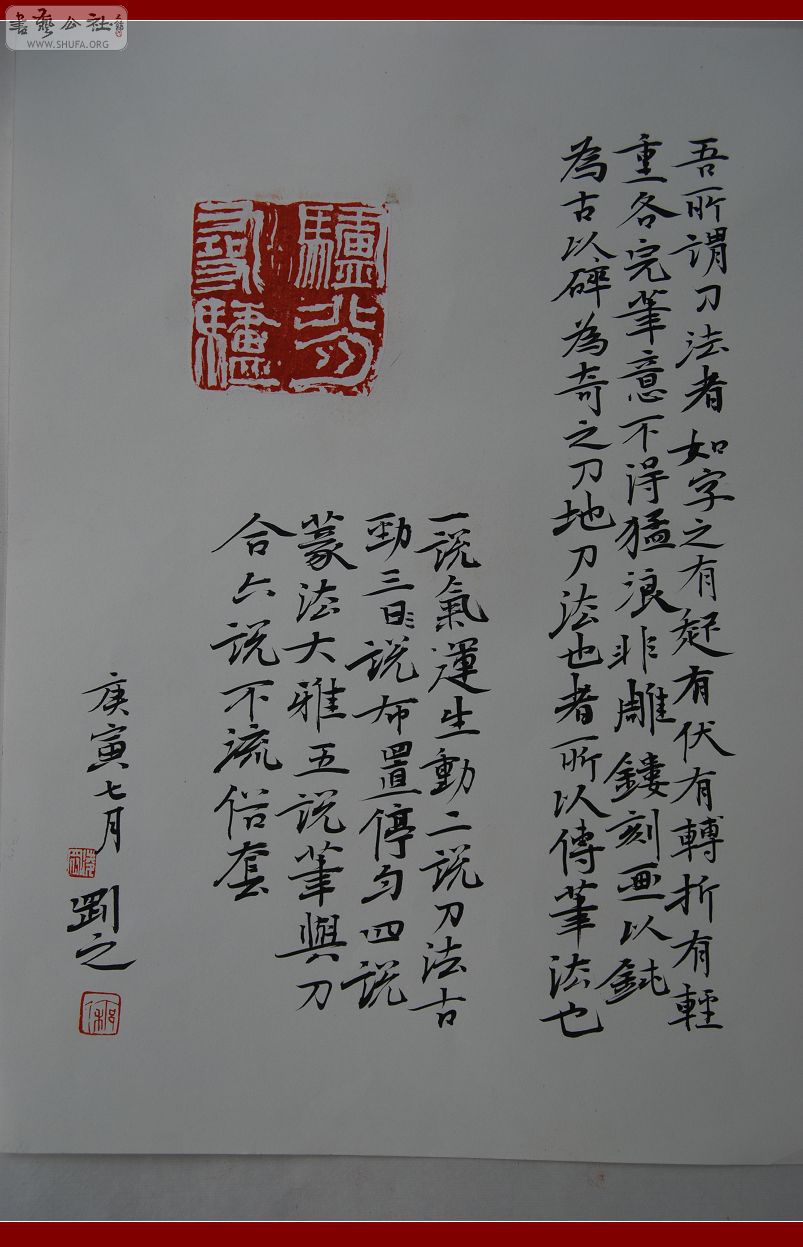 書藝公社
WWW.SHUFA.ORG
吾所謂刀法者如字之有起有伏有轉折有輕
重各完筆意不得猛浪非雕鏤刻画以鈍
為古以碎為奇之刀地刀法也者所以傳筆法也
驢背
尋驢
一説氣運生動二説刀法古
勁三曰説布置停勻四説
篆法大雅五説筆與刀
合六説不流俗套
庚寅七月 劉之